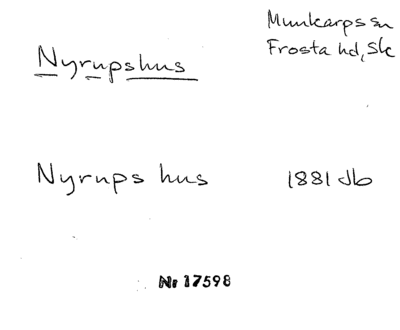 Munkarps sn
Frosta hd, Sk
Nyrupshus
Nyrups hus 1881 Jb
Nr 17598